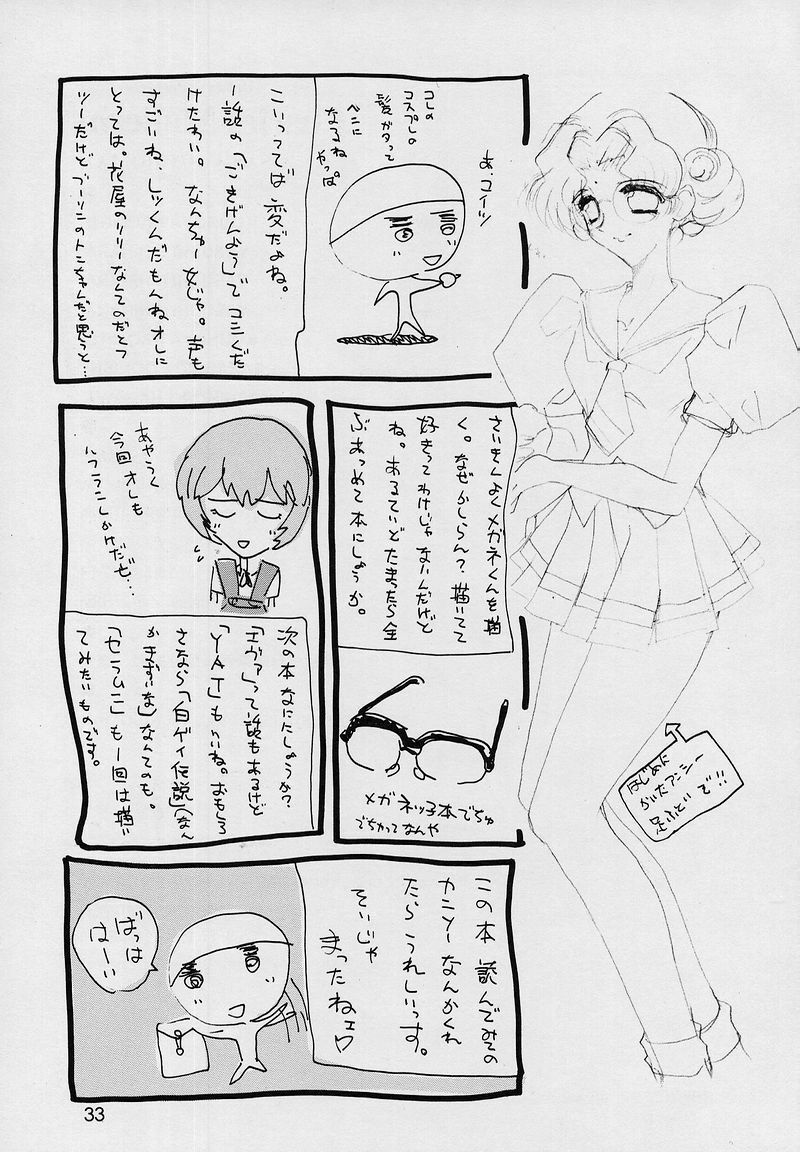 あ、コイツ
コレの
コスプレの
髪がタって
ベニに
なるね
やっぱ
こいつってば変だよね。
一話の「ごきげんよう」でコニくだ
けたわい。なんちゅー女じゃ。声も
すごいね、しっくんだもんね オレに
とっては。花屋のリリーなんてのだとつ
ツーだけど ブーリンのトンちゃんだと思うと…
さいきんよくメガネくんを描
く。なぜかしらん?描いてて
好きってわけじゃないんだけど
ね。あるていどたまったら全
ぶあつめて本にしようか。
メガネッ子本でちゅ
でちかってなんや
あやうく
今回オレも
ハラニしかけだぜ…
次の本なにしようか?
「エヴァ」って話もあるけど
「YAT」もいいね。おもしろ
さなら「白ゲイ伝説」(なん
かまずいな)なんてのも。
「セラムニ」も一回は描い
てみたいものです。
はじめに
かいたアンシー
足ふとい で!!
この本 読んでみての
カンソーなんかくれ
たら うれしいっす。
そいじゃ
まったねェ
ばっは
はーい
33